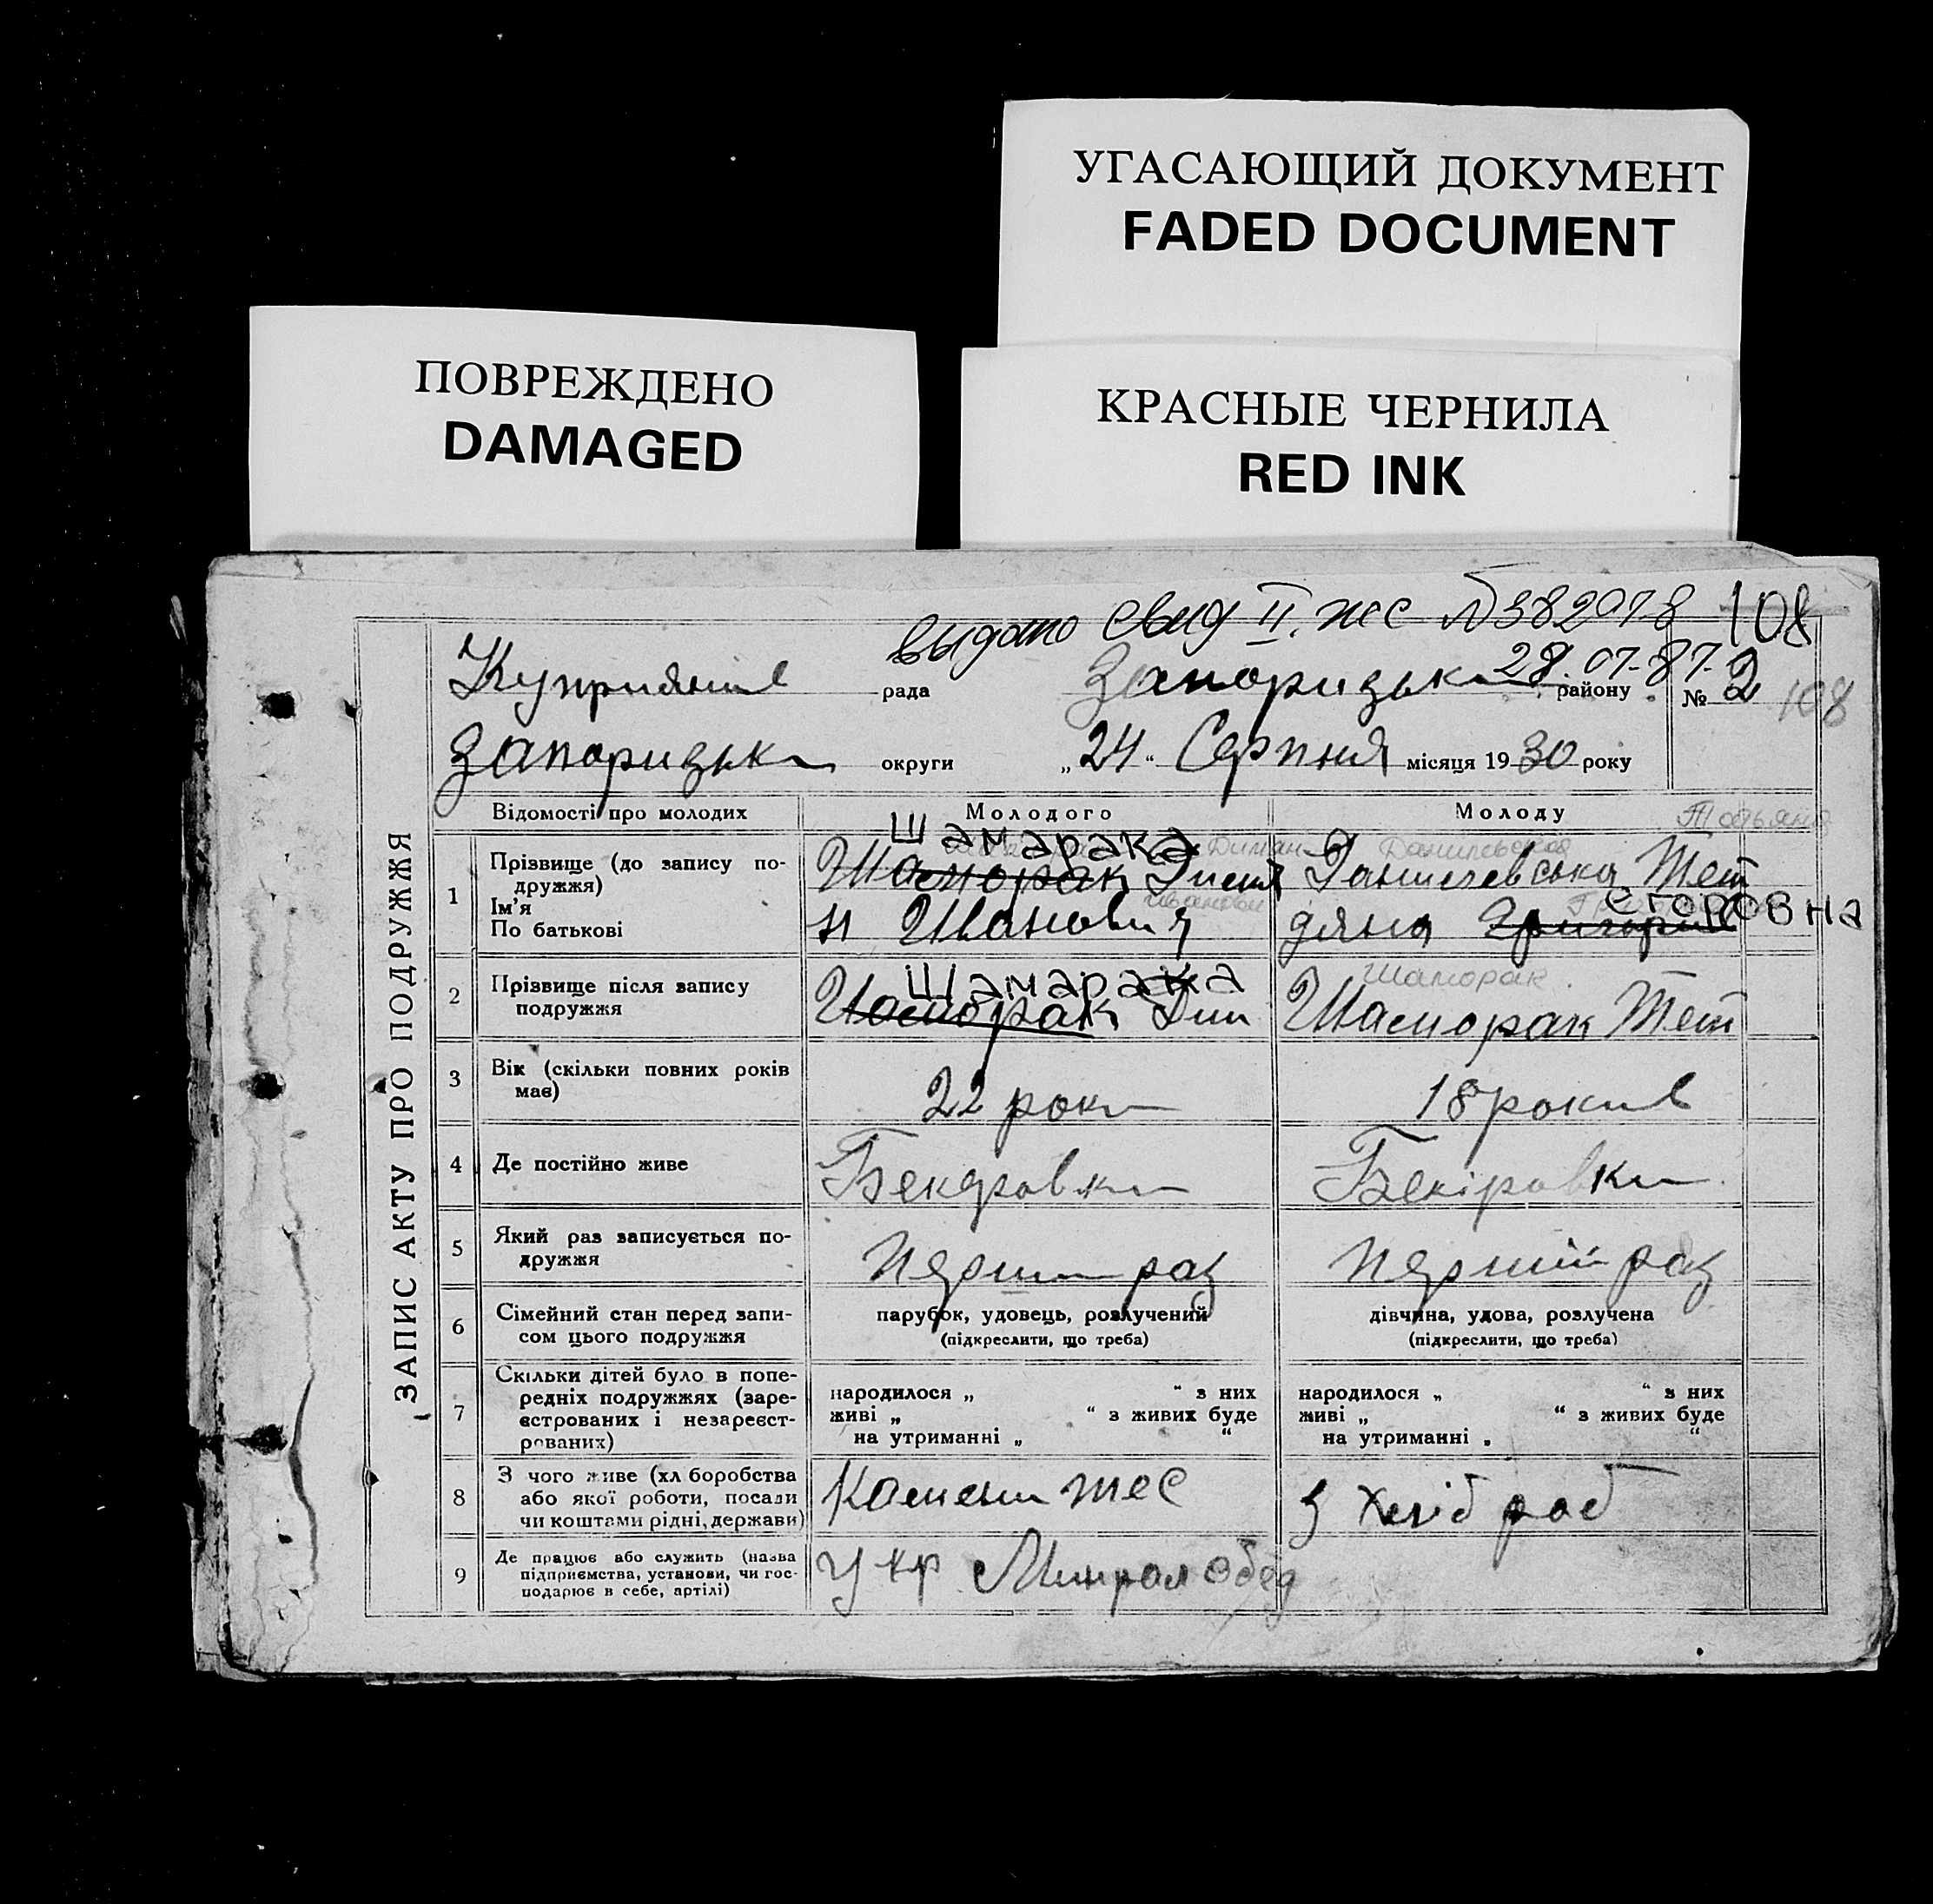 УГАСАЮЩИЙ ДОКУМЕНТ
FADED DOCUMENT
ПОВРЕЖДЕНО
DAMAGED
КРАСНЫЕ ЧЕРНИЛА
RED INK
выдано свид II. жс № 382078 108
28.07-87.
рада Запоризьк району № 2 108
Запоризьк округи „24“ Серпня місяця 1930 року
ЗАПИС АКТУ ПРО ПОДРУЖЖЯ
Відомості про молодих Молодого Молоду
Татьяна
1 Прізвище (до запису по-
дружжя)
Ім'я
По батькові
Шамарака
Шаморак
Иванович
Данилевская
Данилевська Тет
яна
Егоровна
2 Прізвище після запису
подружжя
Шамарака
Шаморак Дми
Шаморак
Шаморак Тет
3 Вік (скільки повних років
має)
22 роки
18 рокив
4 Де постійно живе
5 Який раз записується по-
дружжя
раз
перший раз
6 Сімейний стан перед запи-
сом цього подружжя
парубок, удовець, розлучений
(підкреслити, що треба)
дівчина, удова, розлучена
(підкреслити, що треба)
7 Скільки дітей було в попе-
редніх подружжях (заре-
єстрованих і незареєст-
рованих)
народилося „ “ з них
живі „ “ з живих буде
на утриманні „ “
народилося „ “ з них
живі „ “ з живих буде
на утриманні „ “
8 З чого живе (хліборобства
або якої роботи, посади
чи коштами рідні, держави)
тес
з хліб роб
9 Де працює або служить (назва
підприємства, установи, чи гос-
подарює в себе, артілі)
Укр